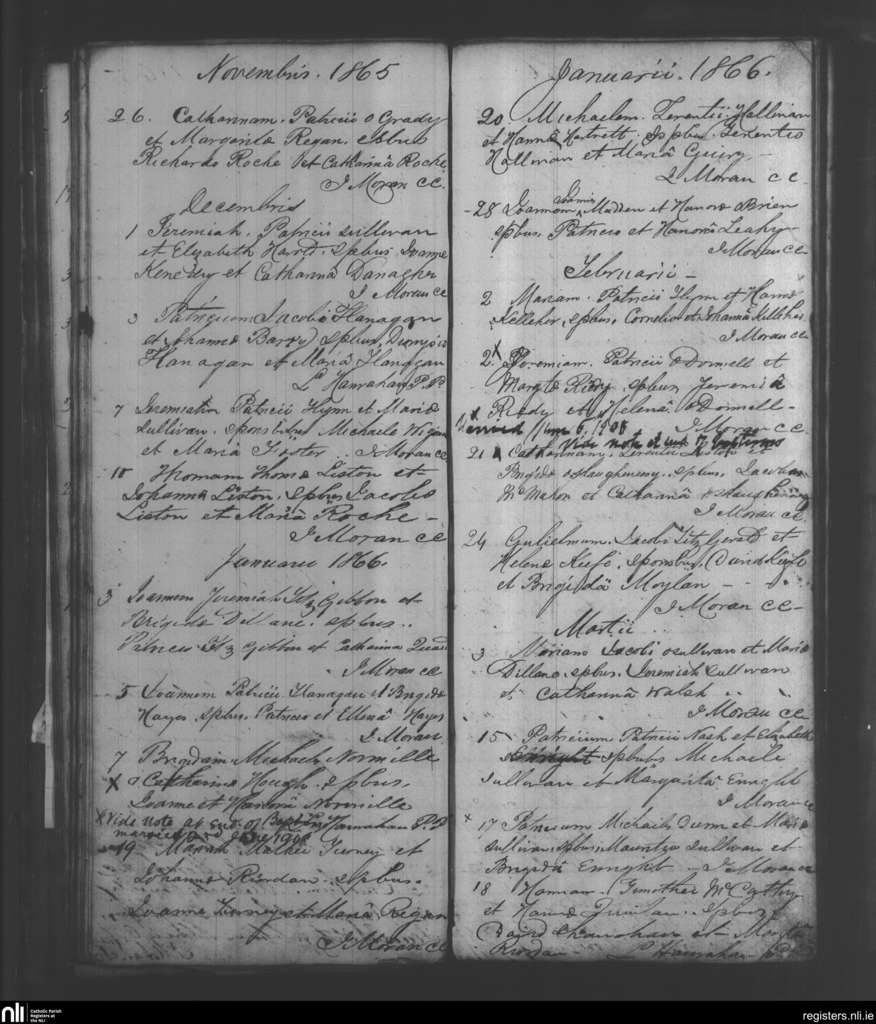 Novembris. 1865
26. Catharinam. Patricii O Grady
et Margaritæ Regan. spbus
Richardo Roche et Catharinâ Roche
J Moran CC.
Decembris
1 Jeremiah. Patricii Sullivan
et Elizabeth Spbus. Joanne
Kenedy et Catharinâ Danagher
J Moran CC
3 Patricium Jacobi Flanagan
et Johannæ Barry Spbus.
Flanagan et Mariâ Flanagan
Hanrahan P.P.
7 Jeremiam Patricii Flynn et Mariæ
Sullivan. sponsbus Michaele
et Mariâ J Moran CC
10 Thomam Thomæ Liston et
Johanna Liston. Spbus Jacobo
Liston et Mariâ Roche -
J Moran CC
Januarii 1866.
3 Joannem Jeremiah Fitz Gibbon et
Brigidæ Dillane. spbus..
Patricio Fitz Gibbon et Catharina
J Moran CC
5 Joannem Patricii Flanagan et Brigidæ
Hayes. Spbus. Patricio et Ellenâ Hayes
J Moran
7 Brigidam Michaelis Normille
X Catherinæ Hough. spbus.
Joanne et Normille
X Vide note at end of Hanrahan P.P
married 1908
19 Mariah Tierney et
Johanna Riordan. spbus.
Joanne Tierney et Mariâ Regan
J Moran CC
Januarii. 1866.
20 Michaelem. Terentii Hallinan
et Hannæ Hartnett. Spbus. Terentio
Hallinan et Mariâ -
J Moran CC
28 Joannem Joannis Madden et Honoræ OBrien
spbus. Patricio et Honoriâ Leahy
J Moran CC
Februarii -
2 Mariam. Patricii Flynn et Hannæ
Kelleher, spbus. Cornelio et Johannâ Kelleher
J Moran CC
2 X Jeremiam. Patricii ODonnell et
Margtæ Reidy. spbus Jeremiâ
X Reidy et Helenâ ODonnell -
married June 6. 1908 J Moran CC
Vide note at end of
21 X Catharinam. Liston et
Brigidæ oshaughnessy. spbus. Jacobo
McMahon et Catharinâ oshaughnessy
J Moran CC.
24 Gulielmum. Jacobi Fitz Gerald et
Helenæ Keefe. Sponsbus. David Keefe
et Brigidâ Moylan - - -
J Moran CC -
Martii ..
3 Mariam Jacobi osullivan et Mariæ
Dillane. spbus. Jeremiah Sullivan
et Catharinâ Walsh
J Moran CC
15 Patricium Patricii Nash et Elizabeth
Enright spbus Michaele
Sullivan et Margaritâ Enright
J Moran CC
X 17 Patricium Michaelis Dunn et Mariæ
Sullivan. spbus. Mauritio Sullivan et
Brigidâ Enright - J Moran CC
18 Timothei McCarthy
et Hannæ Quinlan. Spbus
David Shanahan et
Riordan - Hanrahan P.P.
nli
Catholic Parish
Registers at
the NLI
registers.nli.ie